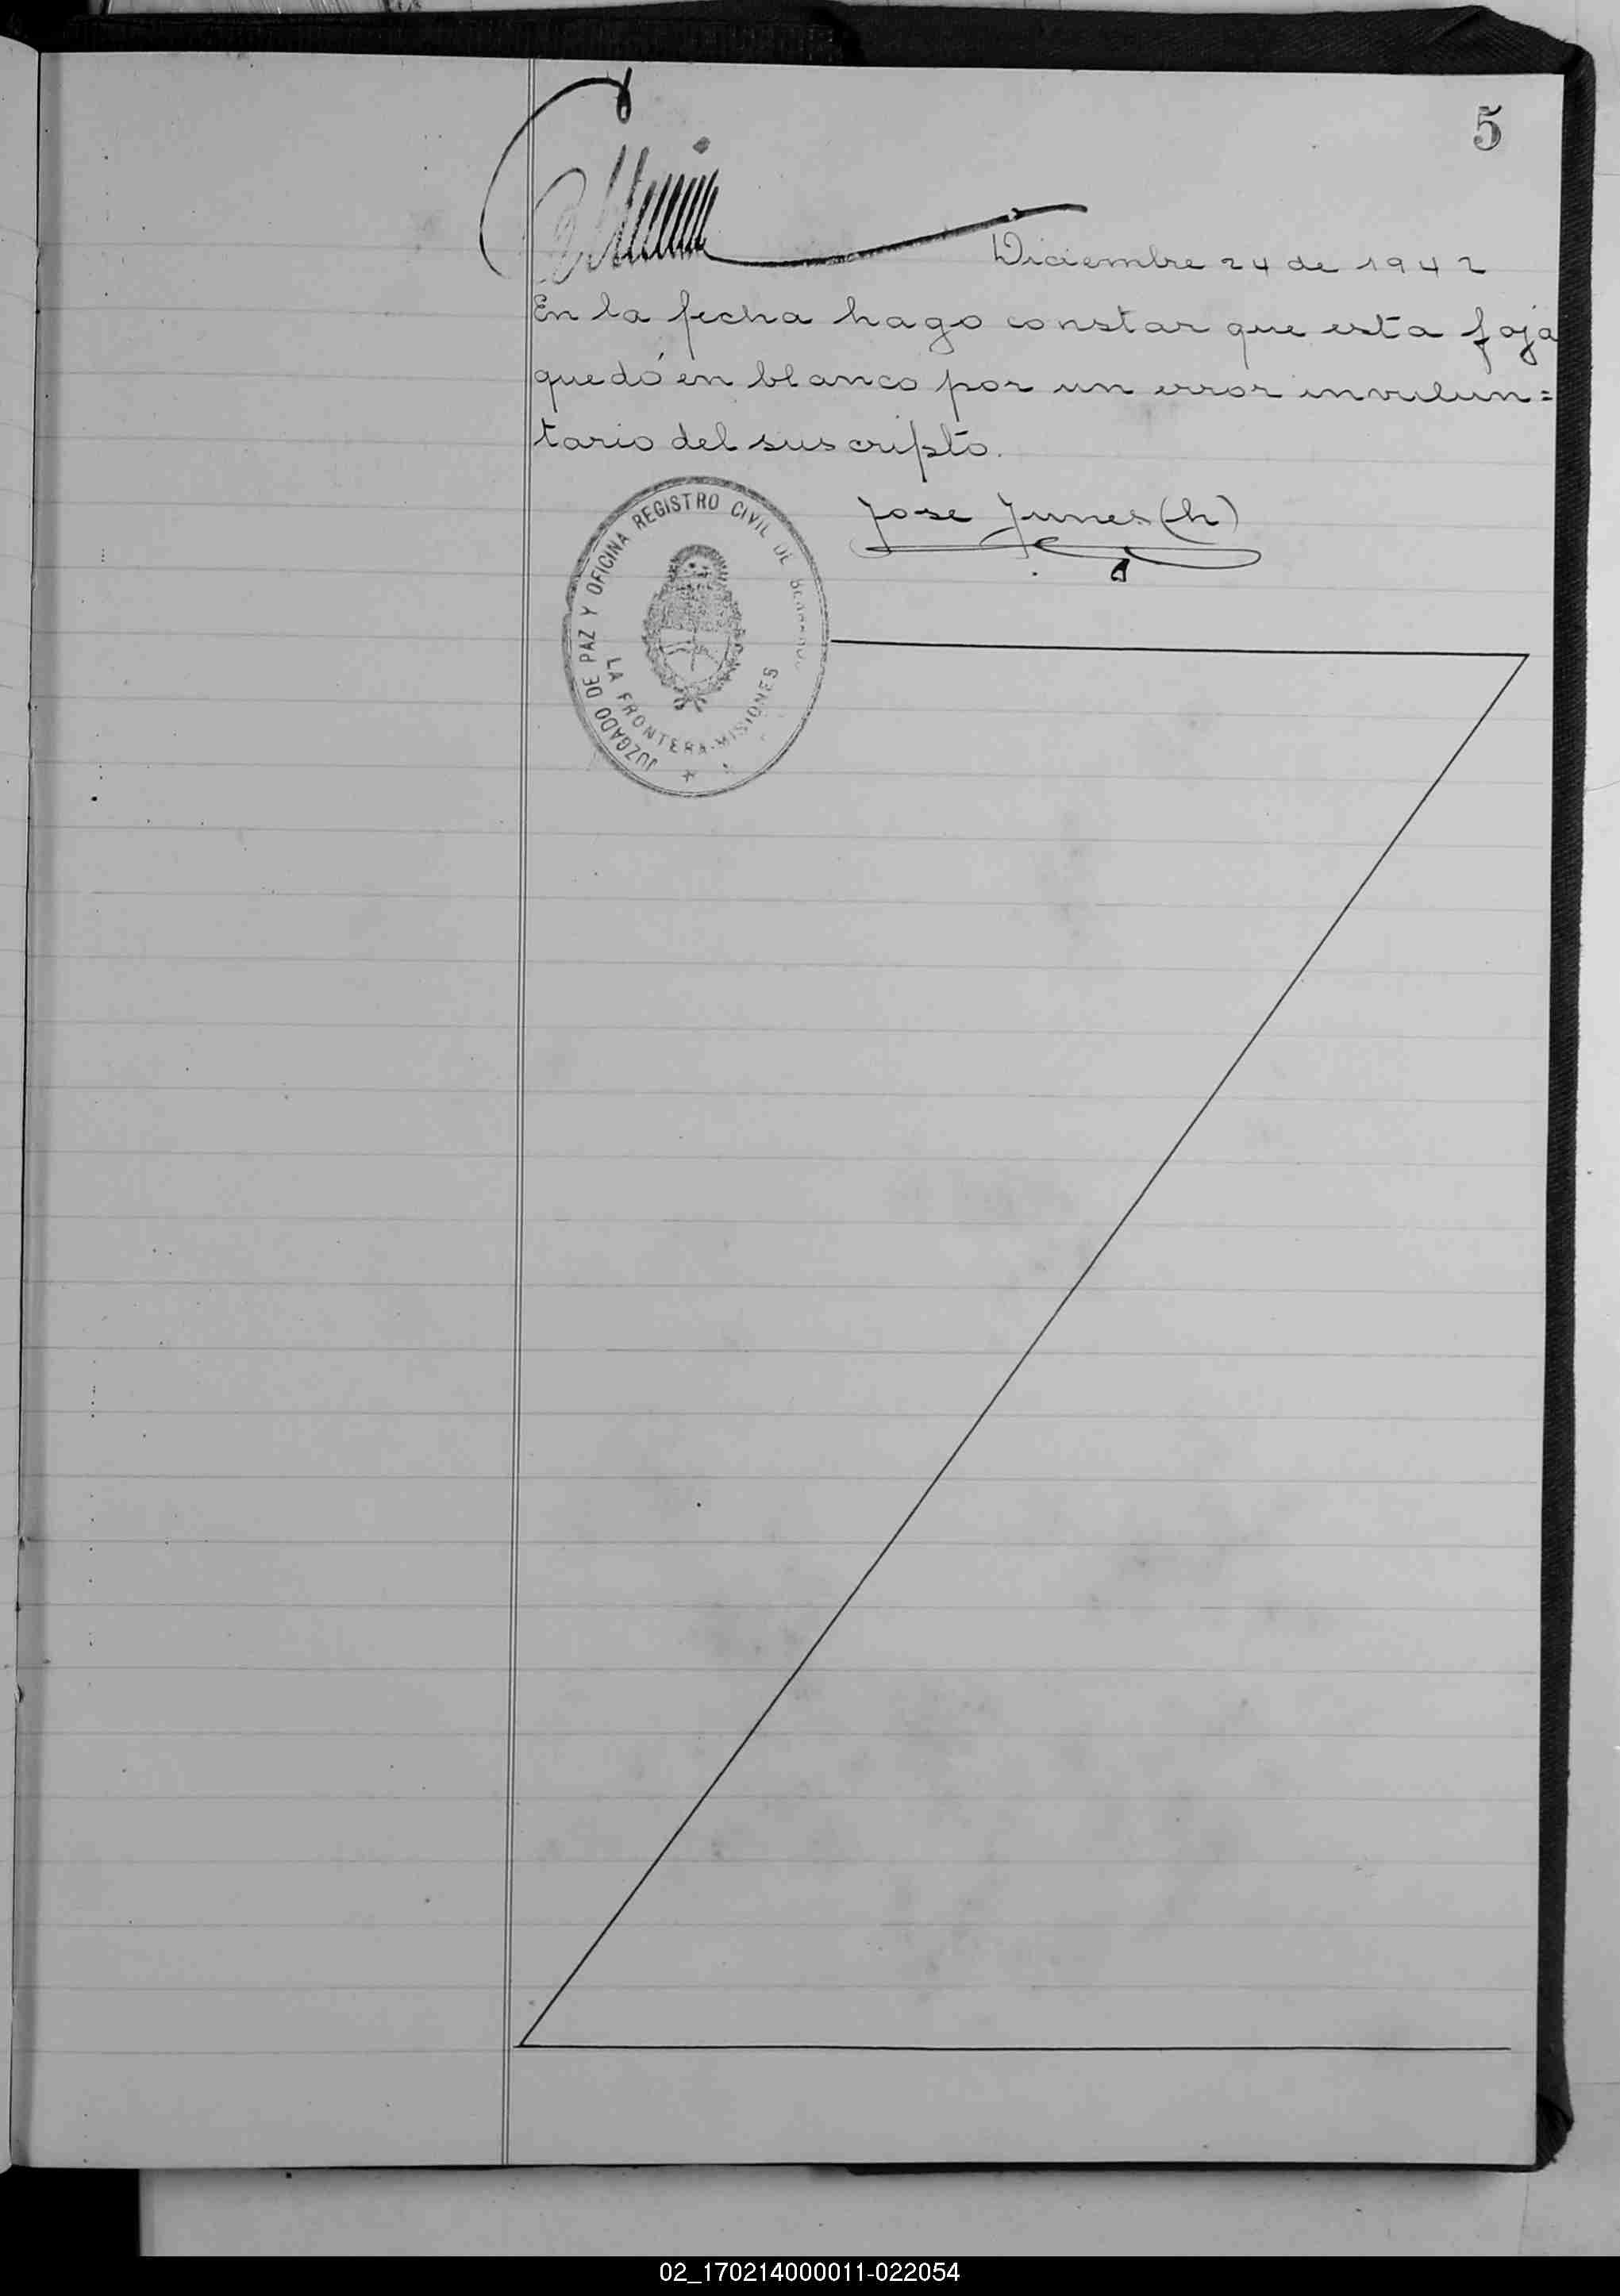 5
Diciembre 24 de 1942
En la fecha hago constar que esta foja
quedó en blanco por un error involun=
tario del suscripto.
Jose Junes (h)
JUZGADO DE PAZ Y OFICINA REGISTRO CIVIL DE
LA FRONTERA-MISIONES
02_170214000011-022054